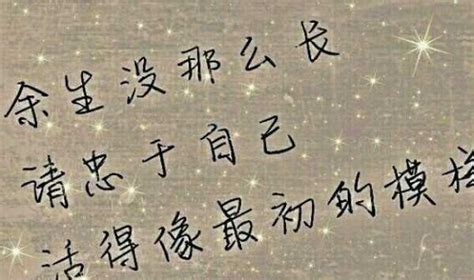 余生没那么长
请忠于自己
活得像最初的模样